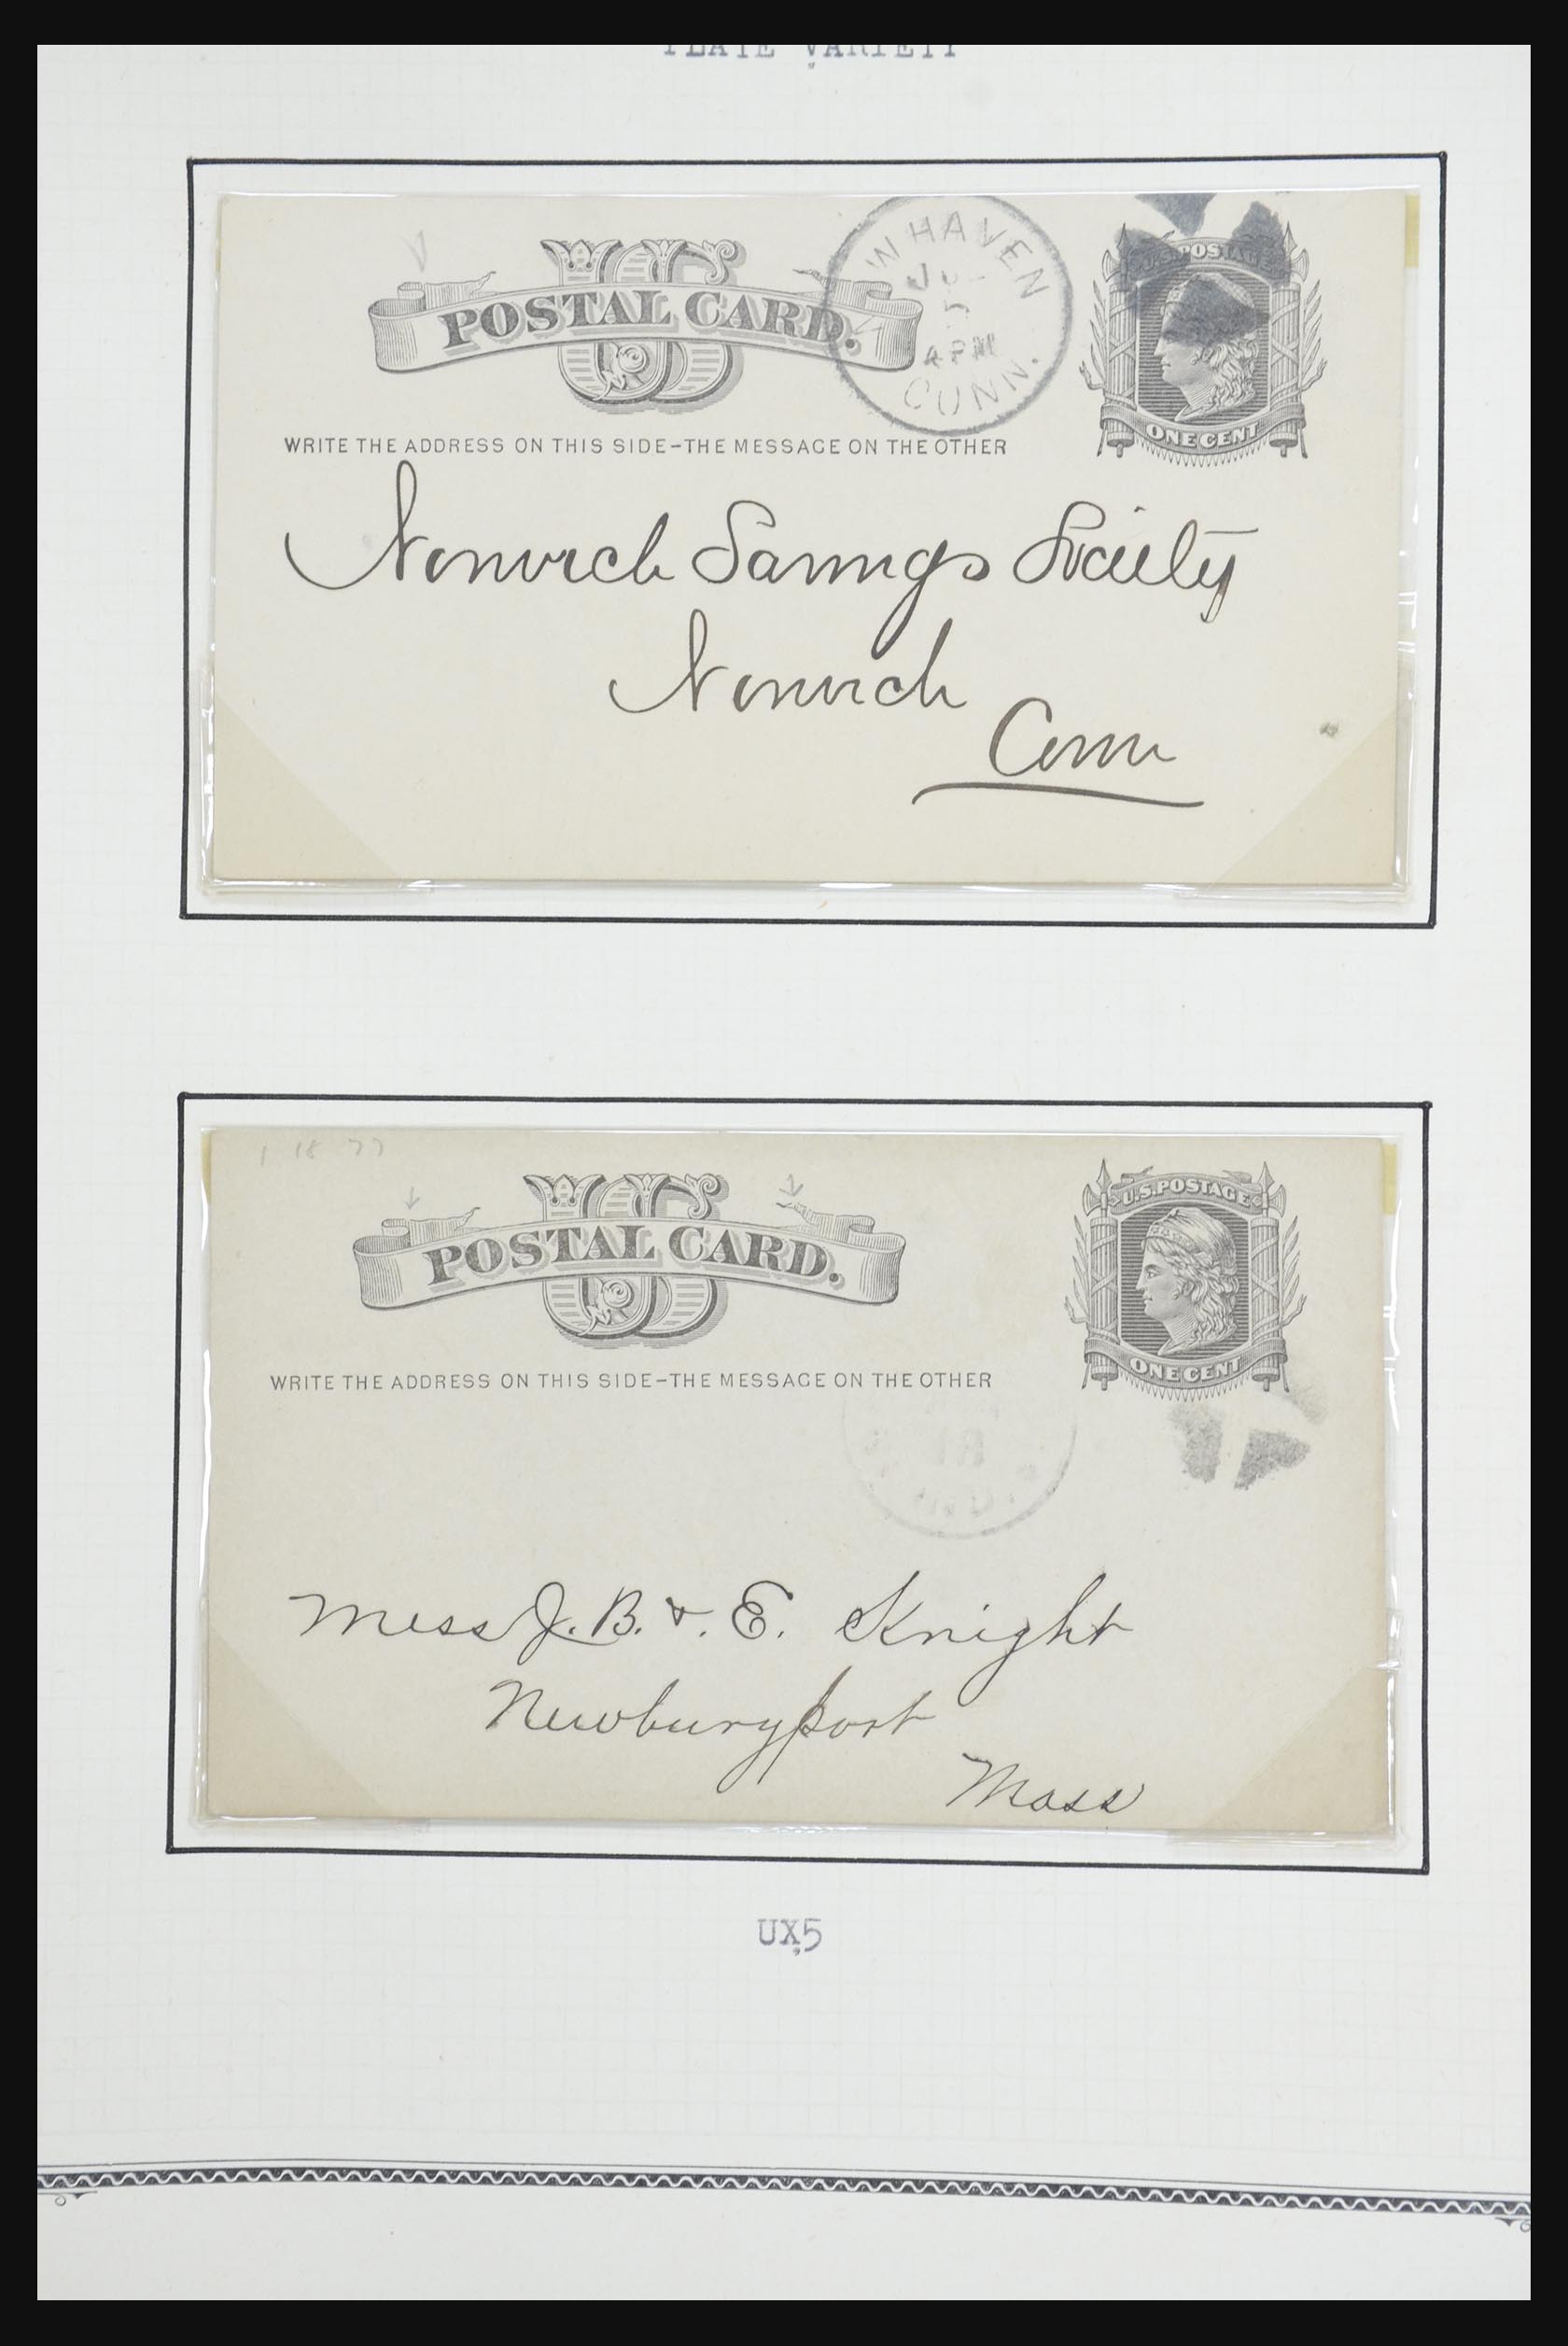 PLATE VARIETY
POSTAL CARD.
W HAVEN
4 PM
CONN.
U.S. POSTAGE
ONE CENT
WRITE THE ADDRESS ON THIS SIDE–THE MESSAGE ON THE OTHER
Norwich Savings Society
Norwich
Conn
1 18 77
US
POSTAL CARD.
U.S. POSTAGE
ONE CENT
WRITE THE ADDRESS ON THIS SIDE–THE MESSAGE ON THE OTHER
Mess J. B. & E. Knight
Newburyport
Mass
UX5